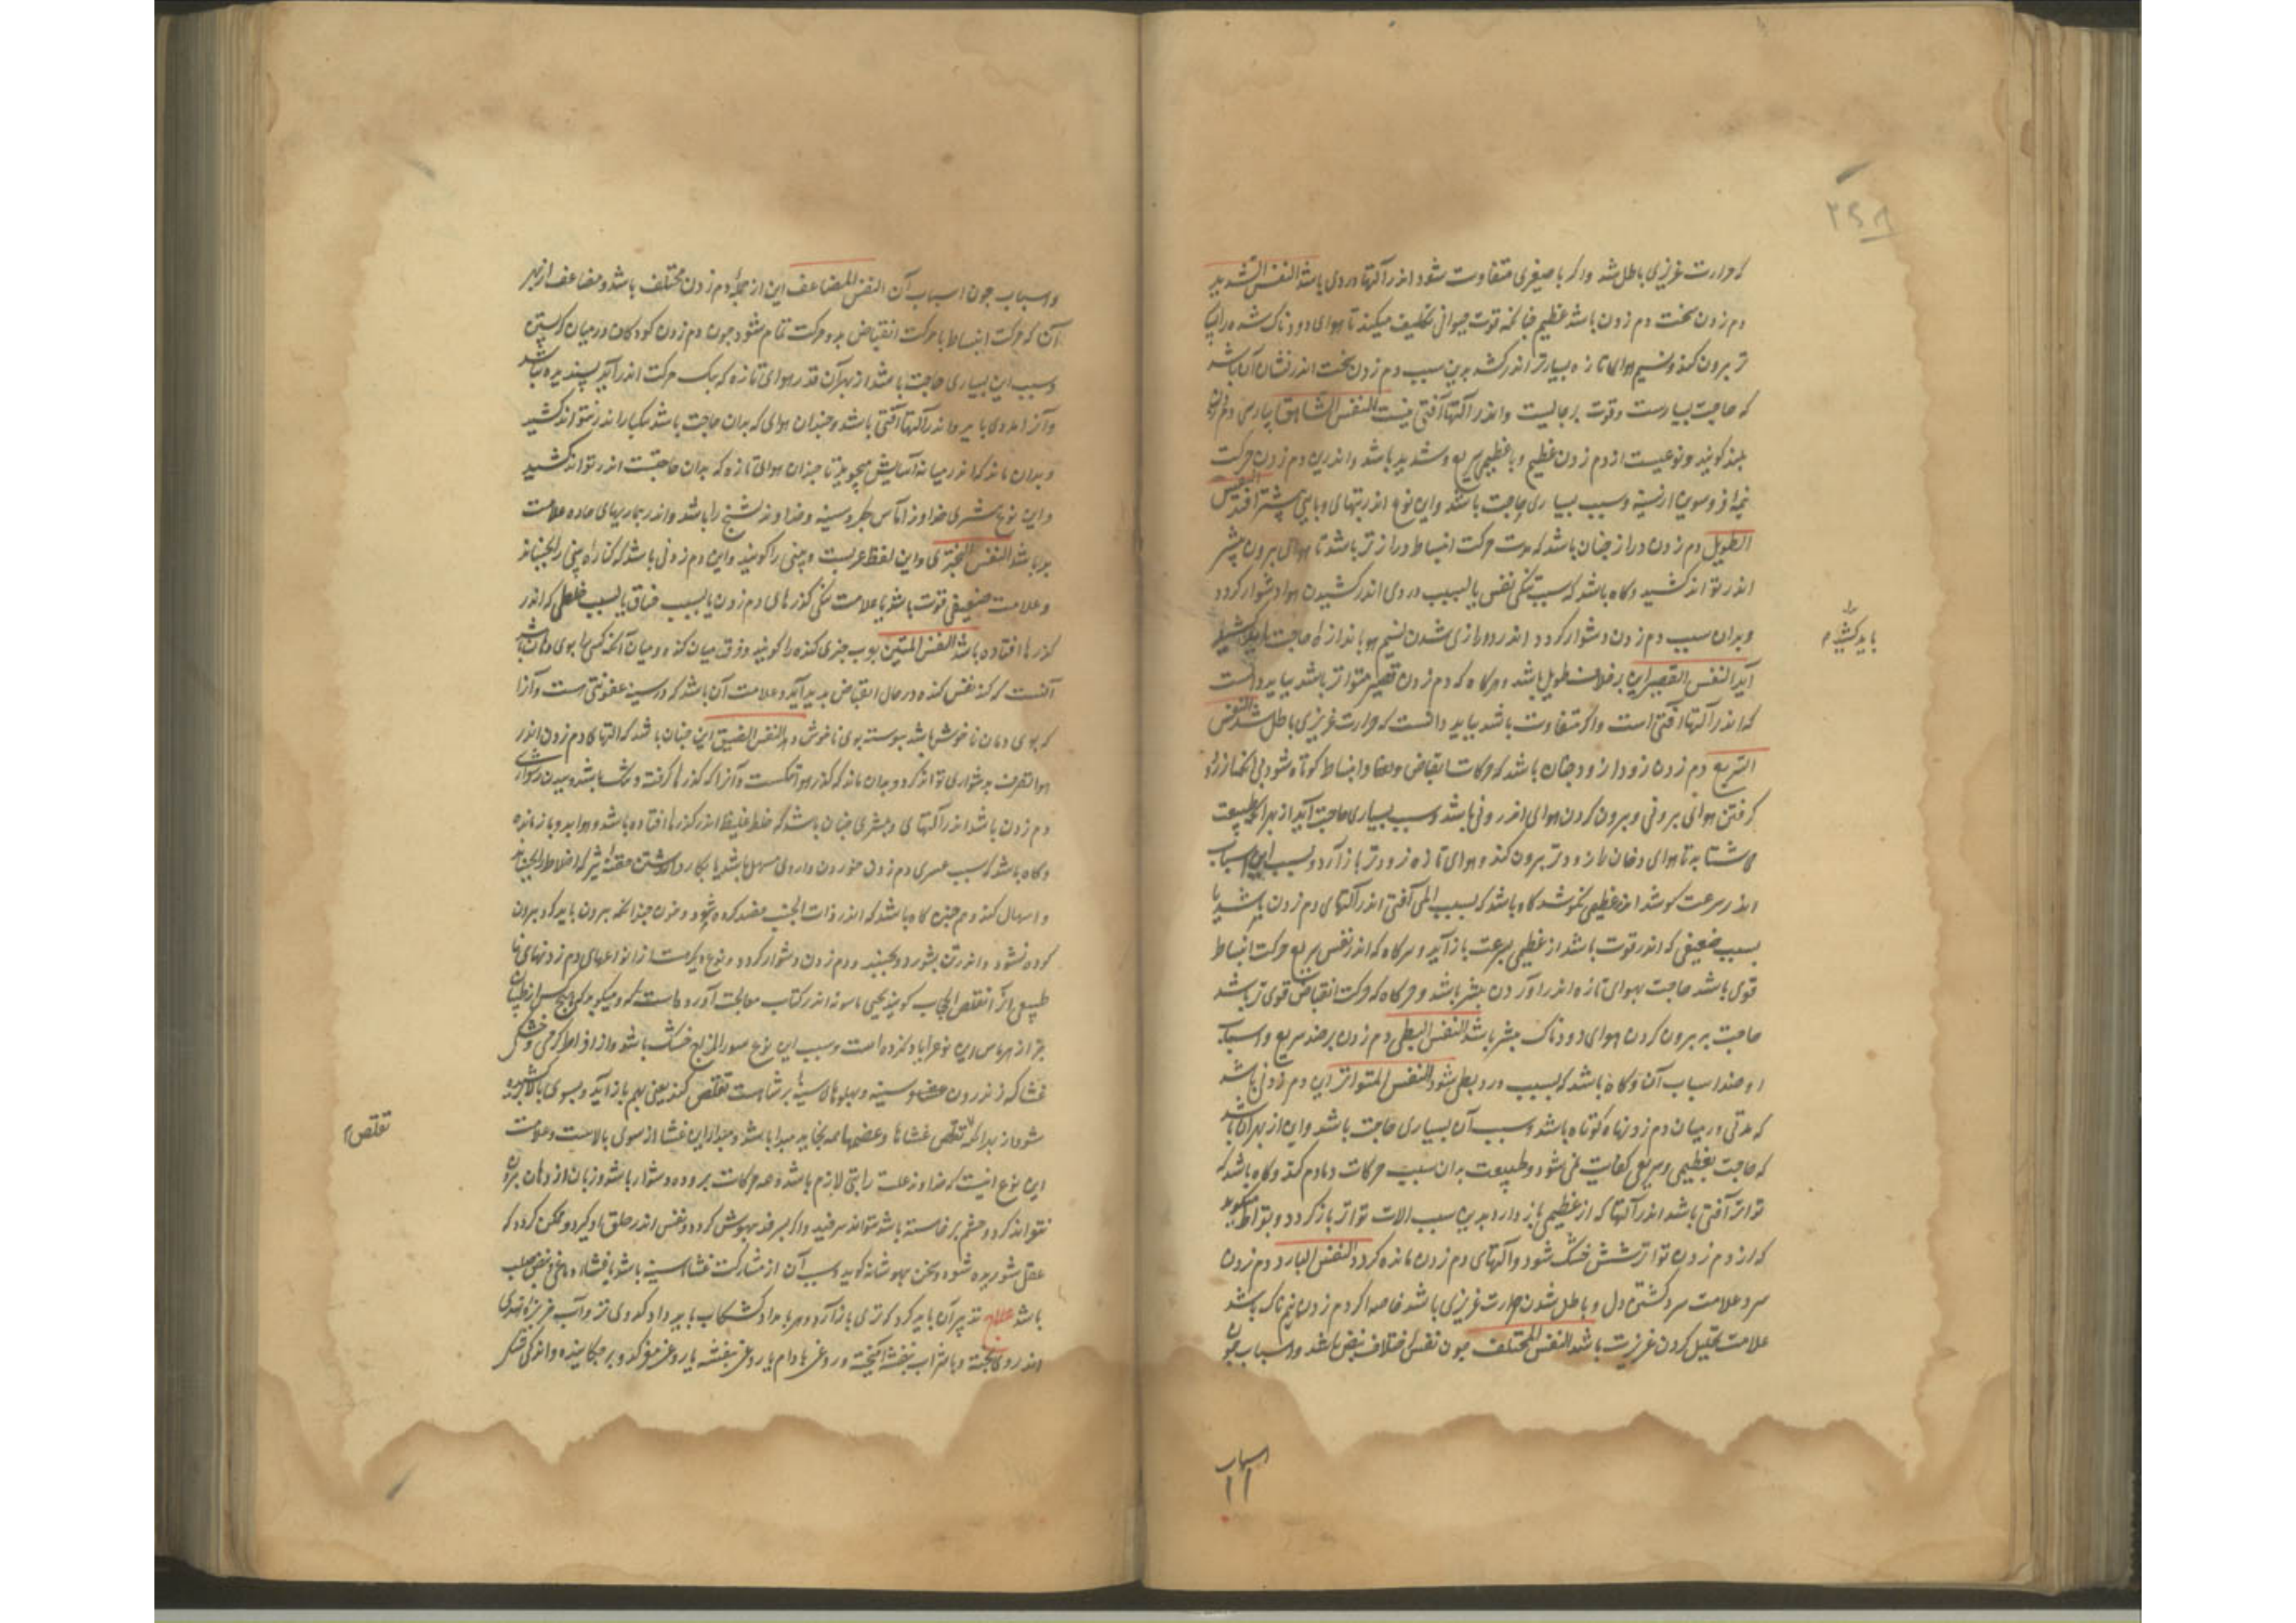 که حرارت غریزی باطل شد و اگر با صغیری متفاوت شود اندر آلتها دردی باشد النفس الشدید
دم زدن سخت دم زدن باشد عظیم چنانکه قوت حیوانی تکلیف میکند تا هوای دودناک شده را
تر برون کند و نسیم هوای تازه بیشتر اندر کشد بدین سبب دم زدن سخت اندر نشان آن باشد
که حاجت بسیارست و قوت برجاییست و اندر آلتها آفتی نیست النفس الشاهق بپارسی دم زدن
بلند گویند و نوعیست از دم زدن عظیم و با عظیمی سریع و شدید باشد و اندرین دم زدن حرکت
و سبب بسیاری حاجت باشد و این نوع اندر تبهای وبایی بیشتر افتد النفس
الطویل دم زدن دراز چنان باشد که مدت حرکت انبساط دراز تر باشد تا هوای برون بیشتر
اندر تواند کشید و گاه باشد که سبب تنگی نفس یا بسبب دردی اندر کشیدن هوا دشوار گردد
و بدان سبب دم زدن دشوار گردد اندر درازی شدن نسیم هوا باندازه حاجت
آید النفس القصیر این بر خلاف طویل باشد و هرگاه که دم زدن قصیر متواتر باشد بباید دانست
که اندر آلتها آفتی است و اگر متفاوت باشد بباید دانست که حرارت غریزی باطل شد النفس
السریع دم زدن زودازود چنان باشد که حرکات انقباض و انبساط کوتاه شود بی آنکه از
گرفتن هوای برونی و برون کردن هوای اندرونی باشد و سبب بسیاری حاجت آید از بهر آنکه طبیعت
می شتابد تا هوای دخانی را زودتر برون کند و هوای تازه زودتر باز آرد و بسبب این اسباب
اندر سرعت کوشد اندر عظیمی نکوشد گاه باشد که بسبب المی آفتی اندر آلتهای دم زدن باشد یا
بسبب ضعیفی که اندر قوت باشد از عظیمی بسرعت باز آید و هرگاه که اندر نفس سریع حرکت انبساط
قوی باشد حاجت بهوای تازه اندر آوردن بیشتر باشد و هرگاه که حرکت انقباض قوی تر باشد
حاجت ببرون کردن هوای دودناک بیشتر باشد النفس البطی دم زدن بر ضد سریع و اسباب
او ضد اسباب آن و گاه باشد که بسبب درد بطی شود النفس المتواتر این دم زدنی باشد
که مدتی در میان دم زدنها کوتاه باشد و سبب آن بسیاری حاجت باشد و این از بهر آن باشد
که حاجت بعظیمی و سریعی کفایت نمی شود و طبیعت بدان سبب حرکات دمادم کند و گاه باشد که
تواتر آفتی باشد اندر آلتها که از عظیمی باز دارد بدین سبب آلات تواتر باز گردد
که از دم زدن تواتر شش خشک شود و آلتهای دم زدن مانده گردد النفس البارد دم زدن
سرد علامت سرد گشتن دل و باطل شدن حرارت غریزی باشد خاصه اگر دم زدن نمناک باشد
علامت تحلیل کردن غریزت باشد النفس المختلف چون نفس اختلاف نبض باشد و اسباب چون
باید کشید م
اسباب
و اسباب چون اسباب آن النفس المضاعف این از جمله دم زدن مختلف باشد و مضاعف از بهر
آن که حرکت انبساط یا حرکت انقباض بدو حرکت تمام شود چون دم زدن کودکان در میان گریستن
و سبب این بسیاری حاجت باشد از بهر آن قدر هوای تازه که بیک حرکت اندر آید پسندیده نباشد
و اندر آلتها آفتی باشد و چندان هوای که بدان حاجت باشد یکبار اندر نتواند کشید
و بدان ماند که اندر میانه آسایش میجوید تا چندان هوای تازه که بدان حاجتست اندر تواند کشید
و این نوع بیشتری خداوند آماس جگر و سینه و خداوند تشنج را باشد و اندر بیماریهای حاده علامت
بد باشد النفس المنخری و این لفظ عربیست و بینی را گویند و این دم زدنی باشد که کناره بینی را بجنباند
و علامت ضعیفی قوت باشد یا علامت تنگی گذرهای دم زدن یا بسبب خناق یا بسبب خلطی که اندر
گذرها افتاده باشد النفس المنتن بوی چیزی گنده را گویند و فرق میان گنده و میان آنکه کسی را بوی دهان باشد
آنست که گند نفس گنده در حال انقباض پدید آید و علامت آن باشد که در سینه عفونتی است و آنرا
که بوی دهان ناخوش باشد پیوسته بوی ناخوش دهد النفس الضیق این چنان باشد که آلتهای دم زدن اندر
هوا تصرف بدشواری تواند کرد و بدان ماند که گذر هوا تنگست و آنرا که گذرها گرفته و تنگ باشد
دم زدن باشد اندر آلتهای و بیشتری چنان باشد که خلط غلیظ اندر گذرها افتاده باشد و هوا بدو باز مانده
و گاه باشد که سبب عسری دم زدن خوردن داروی مسهل باشد یا بکار داشتن حقنه تیز که اخلاط را بجنباند
و اسهال کند و هم چنین گاه باشد که اندر ذات الجنب فصد کرده شود و خون چندانکه برون باید کرد برون
کرده نشود و اندر تن بشورد و بجنبد و دم زدن دشوار گردد و نوع دیگرست از انواعهای دم زدنهای نا
طبیعی آنرا تقلص الحجاب گویند یحیی ماسویه اندر کتاب معالجت آورده است و میگوید که هیچ کس از طبیبان
جز از هرماس این نوع را یاد نکرده است و سبب این نوع سوءالمزاج خشک باشد و از افراط گرمی و خشکی
غشا که اندرون سینه و پهلوهای سینه است تقلص کند یعنی بهم باز آید و بسوی بالا کشیده
شود از بهر آنکه تقلص غشاها و عضوها همه بجانب مبدا باشد و مبدا این غشا از سوی بالاست و علامت
این نوع آنست که خداوند علت را تبی لازم باشد و همه حرکات برو دشوار باشد و زبان از دهان برون
نتواند کرد و چشم برخاسته باشد نتواند سرفید و اگر بسرفد بیهوش گردد و نفس اندر حلق او گیرد و ممکن گردد که
عقل شوریده شود و سخن بیهوشانه گوید و سبب آن از مشارکت غشاء سینه باشد با غشاء دماغی و نبض صلب
باشد علاج تدبیر آن باید کرد که تری باز آرد و هر بامداد کشکاب باید داد کدوی تر و آب خربزه هندی
اندرو پخته و با شراب بنفشه آمیخته و روغن بادام یا روغن بنفشه یا روغن مغز کدو بر چکانیده و اندکی شکر
تقلص م